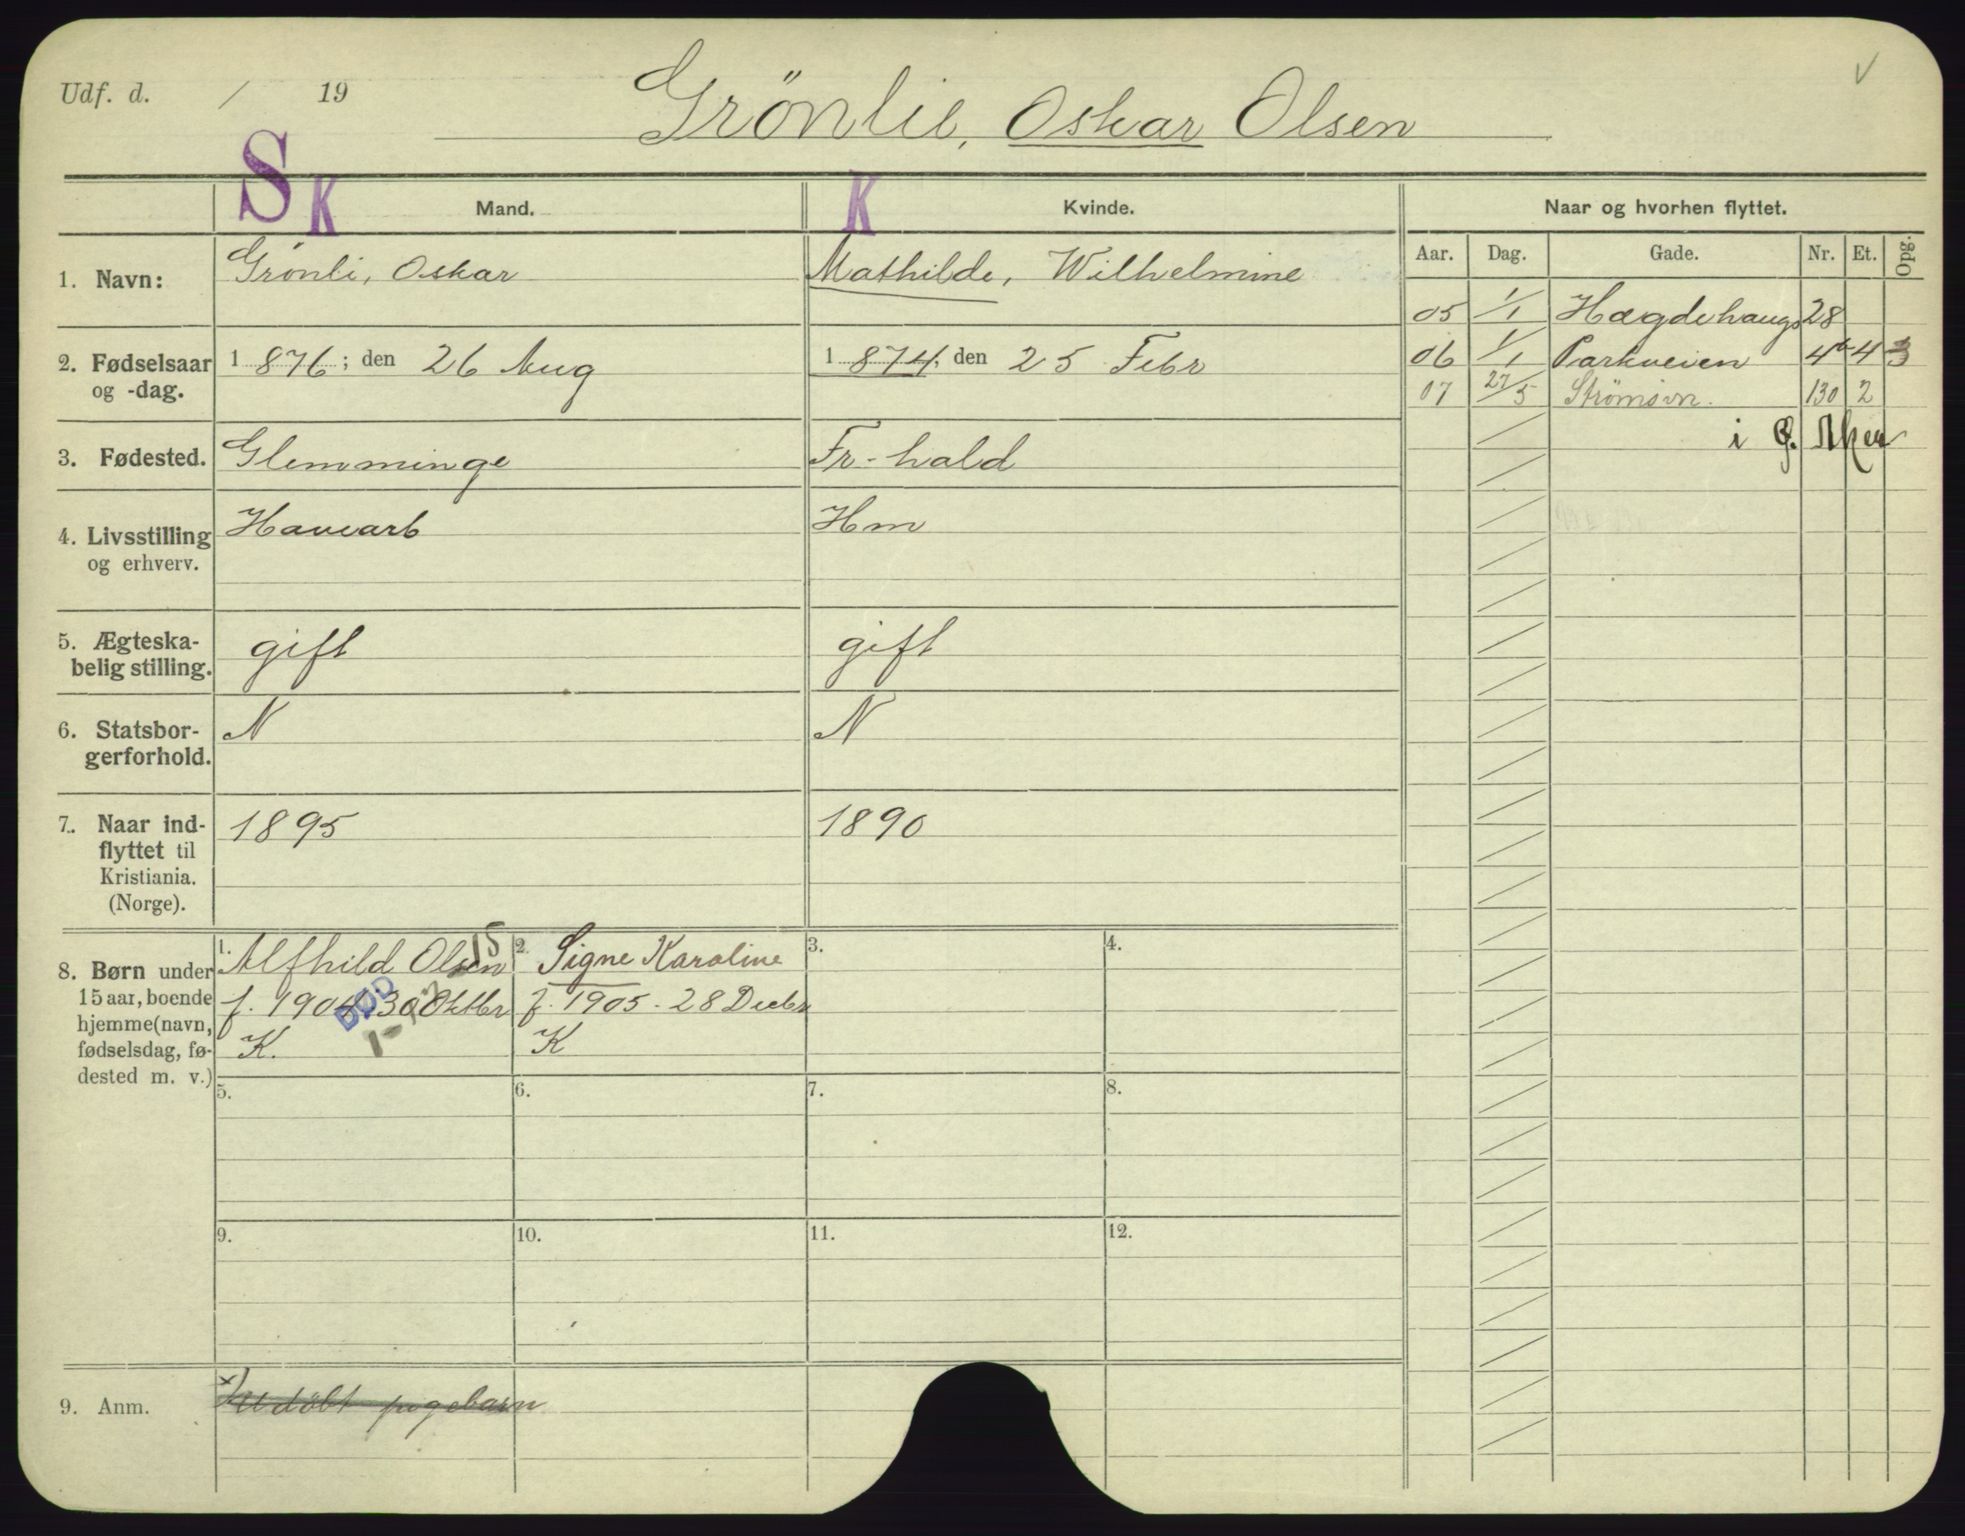 Udf. d. / 19
Grönlie, Oskar Olsen
V
S K K
Mand. Kvinde. Naar og hvorhen flyttet.
Aar. Dag. Gade. Nr. Et. Opg.
1. Navn: Grönli, Oskar Mathilde, Wilhelmine
05 1/1 Hægdehaugs 28
2. Fødselsaar og -dag. 1 876; den 26 Aug 1 874; den 25 Febr
06 1/1 Parkveien 4b 4 3
07 27/5 Strømsvn. 130 2
i Ø. Aker
3. Fødested. Glemminge Fr-hald
4. Livsstilling og erhverv. Havearb Hm
5. Ægteska-
belig stilling. gift gift
6. Statsbor-
gerforhold. N N
7. Naar ind-
flyttet til
Kristiania.
(Norge). 1895 1890
8. Børn under
15 aar, boende
hjemme (navn,
fødselsdag, fø-
dested m. v.)
1. Alfhild Olsen 15
f. 1904 30 Oktbr
K.
DØD
2. Signe Karoline
f. 1905 - 28 Decbr
K
3. 4.
5. 6. 7. 8.
9. 10. 11. 12.
9. Anm. x) Udøbt pigebarn